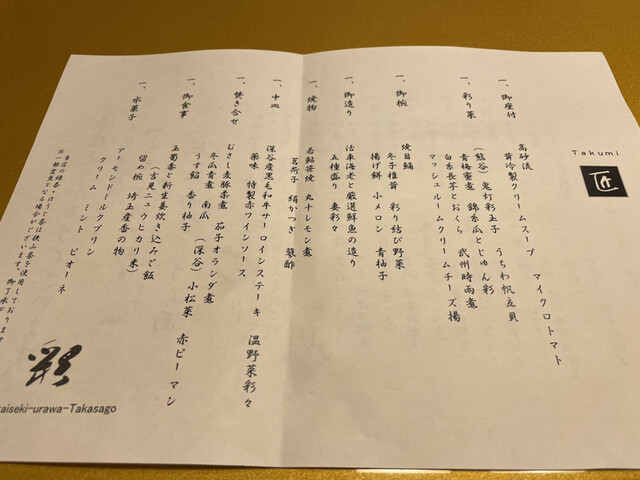 Takumi
匠
一、御座付
高砂流
冷製クリームスープ マイクロトマト
一、彩り菜
(熊谷) 鬼灯彩玉子 うちわ帆立貝
青梅蜜煮 錦糸瓜とじゅん彩
白糸長芋とおくら 武州時雨煮
マッシュルームクリームチーズ揚
一、御椀
焼目鱸
冬子椎茸 彩り結び野菜
揚げ餅 小メロン 青柚子
一、御造り
活車海老と厳選鮮魚の造り
五種盛り 妻彩々
一、焼物
若鮎笹焼 丸十レモン煮
茗荷子 絹かつぎ 蓼酢
一、中皿
深谷産黒毛和牛サーロインステーキ 温野菜彩々
薬味 特製赤ワインソース
一、焚き合せ
むさし麦豚柔煮 茄子オランダ煮
冬瓜青煮 南瓜 (深谷) 小松菜 赤ピーマン
うす餡 香り柚子
一、御食事
玉蜀黍と新生姜炊き込みご飯
(吉見ニュウヒカリ米)
留め椀 埼玉産香の物
一、水菓子
アーモンドミルクプリン
クリーム ミント ピオーネ
※当店の緑茶・ほうじ茶は狭山茶を使用しております
一部変更となる場合がございます。御了承下
彩
aiseki-urawa-Takasago